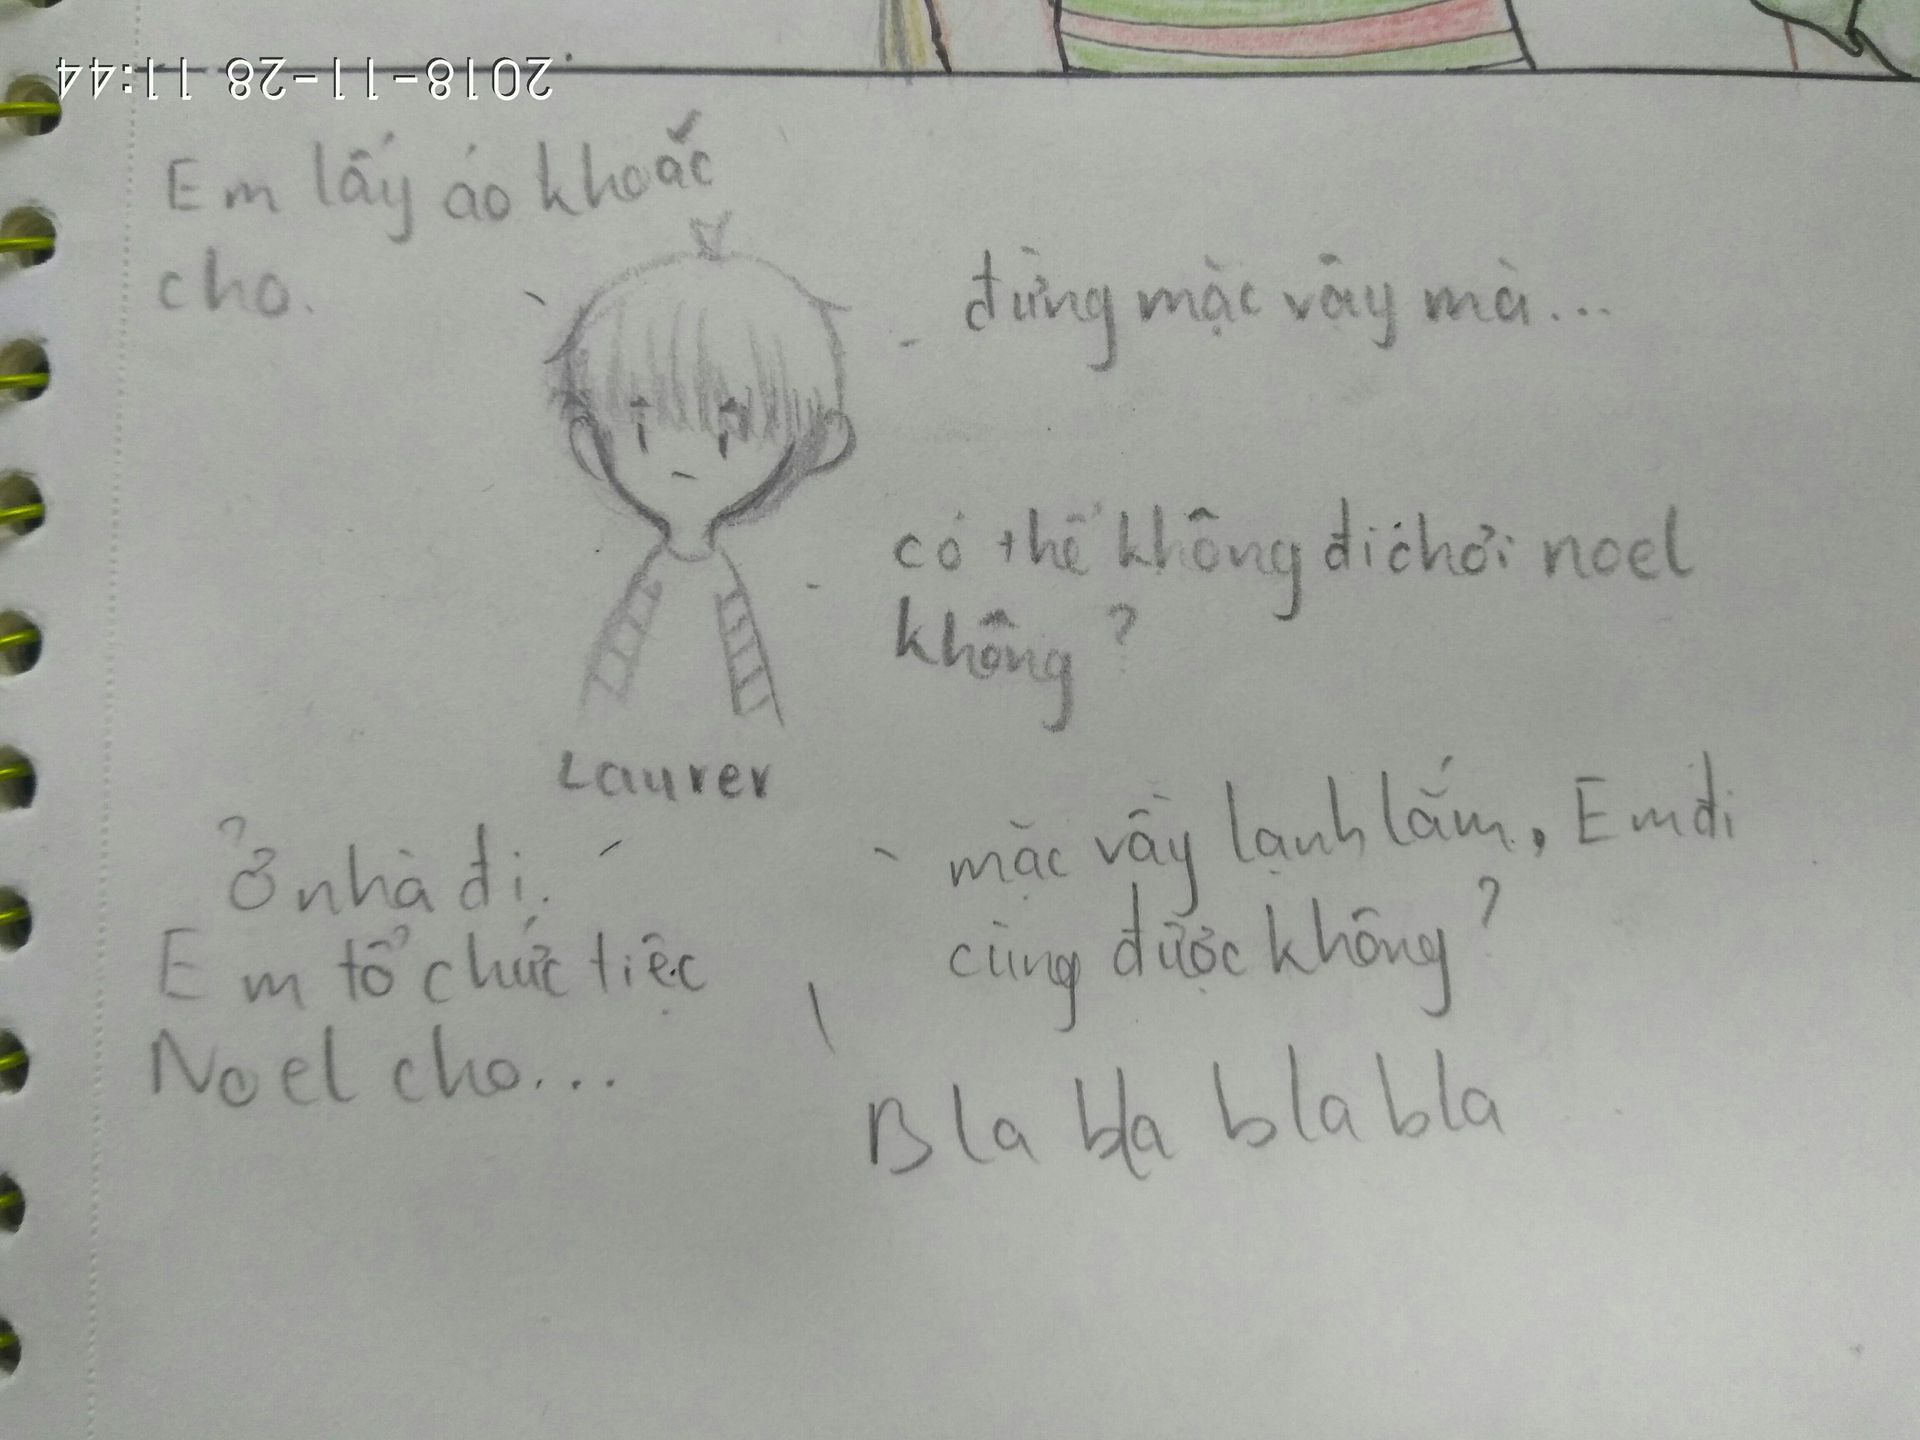 2018-11-28 11:44
Em lấy áo khoắc
cho.
đừng mặc vậy mà...
có thể không đi chơi noel
không?
Laurer
Ở nhà đi.
Em tổ chức tiệc
Noel cho...
mặc vầy lạnh lắm, Em đi
cùng được không?
Bla bla bla bla